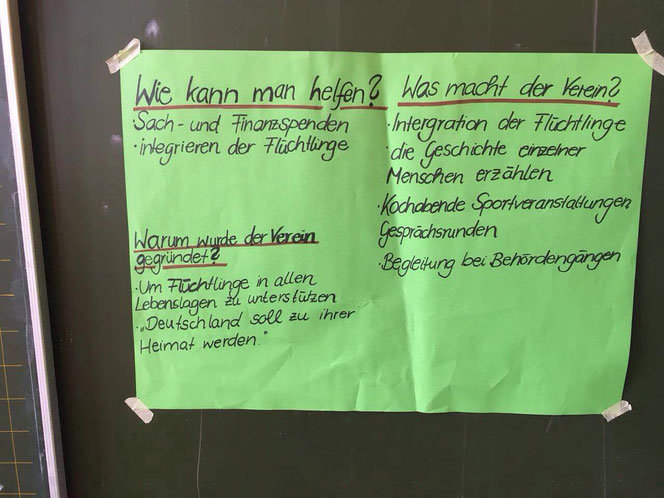 Wie kann man helfen?
·Sach- und Finanzspenden
·integrieren der Flüchtlinge
Warum wurde der Verein
gegründet?
·Um Flüchtlinge in allen
Lebenslagen zu unterstützen
·„Deutschland soll zu ihrer
Heimat werden."
Was macht der Verein?
·Intergration der Flüchtlinge
·die Geschichte einzelner
Menschen erzählen
·Kochabende Sportveranstaltungen
Gesprächsrunden
·Begleitung bei Behördengängen